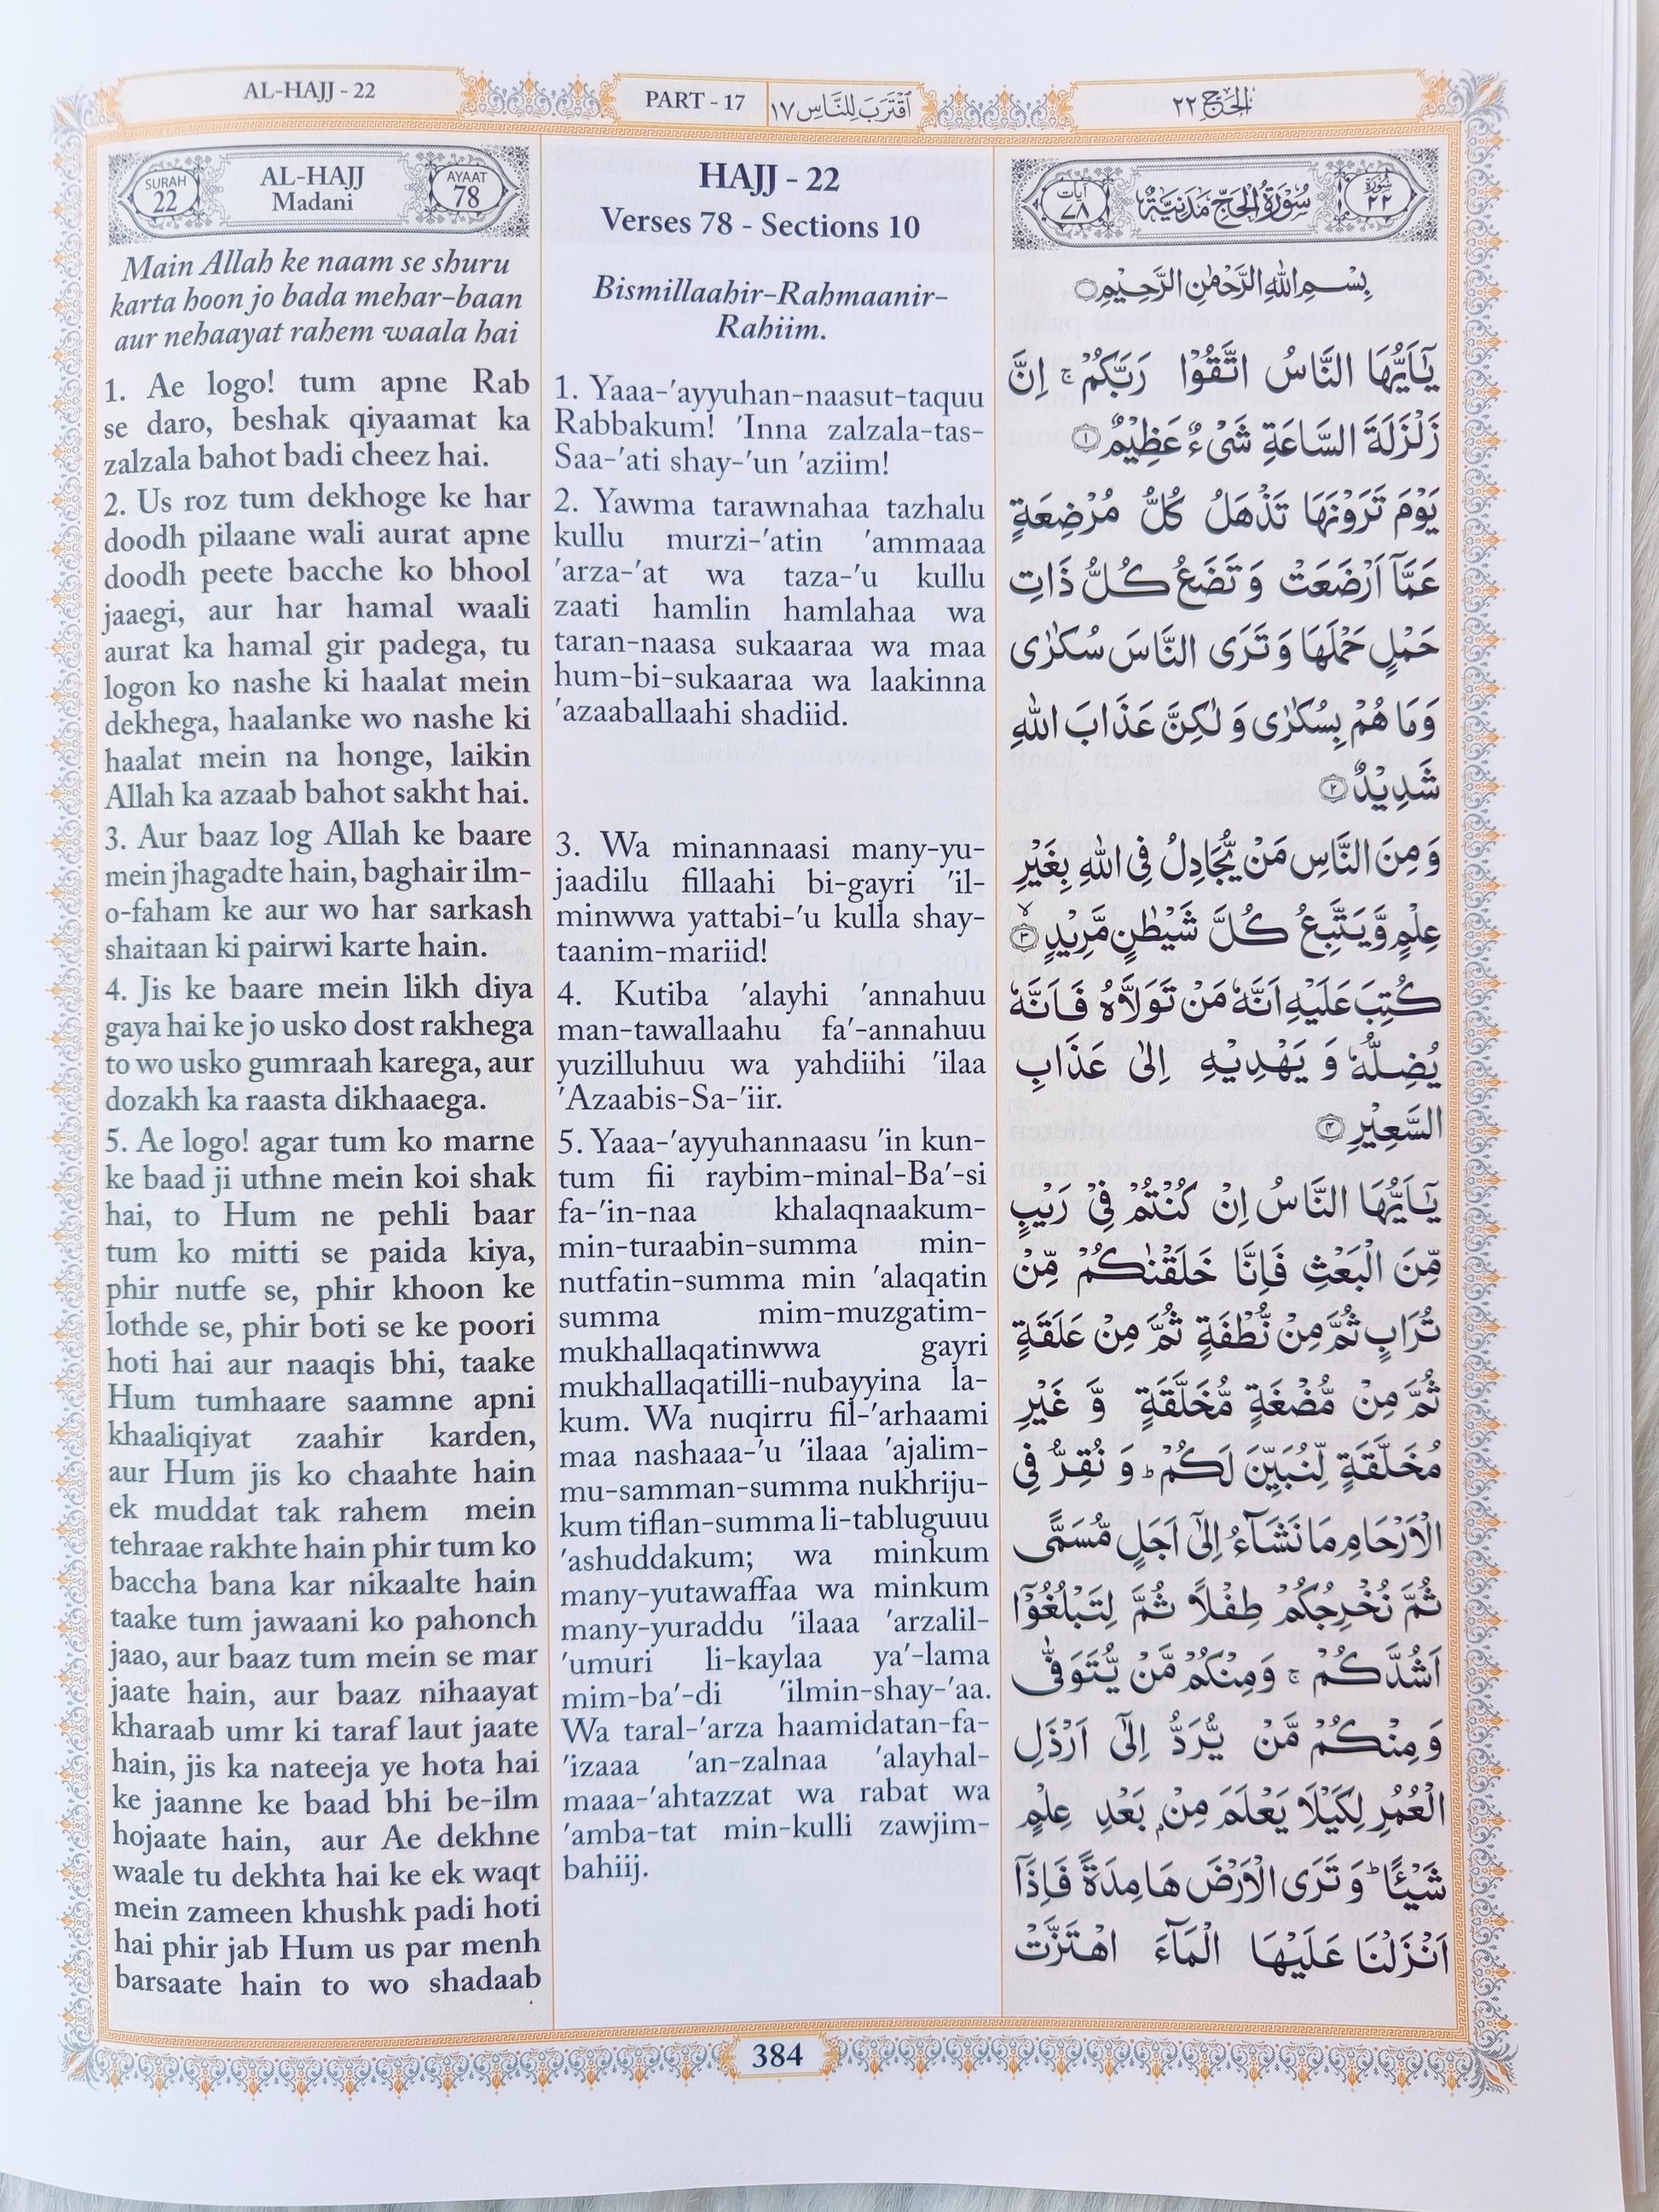 AL-HAJJ - 22
PART - 17
اَقْتَرَبَ لِلنَّاسِ ١٧
الحَجّ ٢٢
SURAH
22
AL-HAJJ
Madani
AYAAT
78
Main Allah ke naam se shuru
karta hoon jo bada mehar-baan
aur nehaayat rahem waala hai
1. Ae logo! tum apne Rab
se daro, beshak qiyaamat ka
zalzala bahot badi cheez hai.
2. Us roz tum dekhoge ke har
doodh pilaane wali aurat apne
doodh peete bacche ko bhool
jaaegi, aur har hamal waali
aurat ka hamal gir padega, tu
logon ko nashe ki haalat mein
dekhega, haalanke wo nashe ki
haalat mein na honge, laikin
Allah ka azaab bahot sakht hai.
3. Aur baaz log Allah ke baare
mein jhagadte hain, baghair ilm-
o-faham ke aur wo har sarkash
shaitaan ki pairwi karte hain.
4. Jis ke baare mein likh diya
gaya hai ke jo usko dost rakhega
to wo usko gumraah karega, aur
dozakh ka raasta dikhaaega.
5. Ae logo! agar tum ko marne
ke baad ji uthne mein koi shak
hai, to Hum ne pehli baar
tum ko mitti se paida kiya,
phir nutfe se, phir khoon ke
lothde se, phir boti se ke poori
hoti hai aur naaqis bhi, taake
Hum tumhaare saamne apni
khaaliqiyat zaahir karden,
aur Hum jis ko chaahte hain
ek muddat tak rahem mein
tehraae rakhte hain phir tum ko
baccha bana kar nikaalte hain
taake tum jawaani ko pahonch
jaao, aur baaz tum mein se mar
jaate hain, aur baaz nihaayat
kharaab umr ki taraf laut jaate
hain, jis ka nateeja ye hota hai
ke jaanne ke baad bhi be-ilm
hojaate hain, aur Ae dekhne
waale tu dekhta hai ke ek waqt
mein zameen khushk padi hoti
hai phir jab Hum us par menh
barsaate hain to wo shadaab
HAJJ - 22
Verses 78 - Sections 10
Bismillaahir-Rahmaanir-
Rahiim.
1. Yaaa-'ayyuhan-naasut-taquu
Rabbakum! 'Inna zalzala-tas-
Saa-'ati shay-'un 'aziim!
2. Yawma tarawnahaa tazhalu
kullu murzi-'atin 'ammaaa
'arza-'at wa taza-'u kullu
zaati hamlin hamlahaa wa
taran-naasa sukaaraa wa maa
hum-bi-sukaaraa wa laakinna
'azaaballaahi shadiid.
3. Wa minannaasi many-yu-
jaadilu fillaahi bi-gayri 'il-
minwwa yattabi-'u kulla shay-
taanim-mariid!
4. Kutiba 'alayhi 'annahuu
man-tawallaahu fa'-annahuu
yuzilluhuu wa yahdiihi 'ilaa
'Azaabis-Sa-'iir.
5. Yaaa-'ayyuhannaasu 'in kun-
tum fii raybim-minal-Ba'-si
fa-'in-naa khalaqnaakum-
min-turaabin-summa min-
nutfatin-summa min 'alaqatin
summa mim-muzgatim-
mukhallaqatinwwa gayri
mukhallaqatilli-nubayyina la-
kum. Wa nuqirru fil-'arhaami
maa nashaaa-'u 'ilaaa 'ajalim-
mu-samman-summa nukhriju-
kum tiflan-summa li-tabluguuu
'ashuddakum; wa minkum
many-yutawaffaa wa minkum
many-yuraddu 'ilaaa 'arzalil-
'umuri li-kaylaa ya'-lama
mim-ba'-di 'ilmin-shay-'aa.
Wa taral-'arza haamidatan-fa-
'izaaa 'an-zalnaa 'alayhal-
maaa-'ahtazzat wa rabat wa
'amba-tat min-kulli zawjim-
bahiij.
سُورَة ٢٢
سُوْرَةُ الْحَجِّ مَدَنِيَّةٌ
اٰيات ٧٨
بِسْمِ اللّٰهِ الرَّحْمٰنِ الرَّحِيْمِ
يٰۤاَيُّهَا النَّاسُ اتَّقُوْا رَبَّكُمْ ۚ اِنَّ
زَلْزَلَةَ السَّاعَةِ شَيْءٌ عَظِيْمٌ ١
يَوْمَ تَرَوْنَهَا تَذْهَلُ كُلُّ مُرْضِعَةٍ
عَمَّاۤ اَرْضَعَتْ وَتَضَعُ كُلُّ ذَاتِ
حَمْلٍ حَمْلَهَا وَتَرَى النَّاسَ سُكٰرٰى
وَمَا هُمْ بِسُكٰرٰى وَلٰكِنَّ عَذَابَ اللّٰهِ
شَدِيْدٌ ٢
وَمِنَ النَّاسِ مَنْ يُّجَادِلُ فِى اللّٰهِ بِغَيْرِ
عِلْمٍ وَّيَتَّبِعُ كُلَّ شَيْطٰنٍ مَّرِيْدٍ ٣
كُتِبَ عَلَيْهِ اَنَّهٗ مَنْ تَوَلَّاهُ فَاَنَّهٗ
يُضِلُّهٗ وَيَهْدِيْهِ اِلٰى عَذَابِ
السَّعِيْرِ ٤
يٰۤاَيُّهَا النَّاسُ اِنْ كُنْتُمْ فِيْ رَيْبٍ
مِّنَ الْبَعْثِ فَاِنَّا خَلَقْنٰكُمْ مِّنْ
تُرَابٍ ثُمَّ مِنْ نُّطْفَةٍ ثُمَّ مِنْ عَلَقَةٍ
ثُمَّ مِنْ مُّضْغَةٍ مُّخَلَّقَةٍ وَّ غَيْرِ
مُخَلَّقَةٍ لِّنُبَيِّنَ لَكُمْ ؕ وَنُقِرُّ فِى
الْاَرْحَامِ مَا نَشَآءُ اِلٰۤى اَجَلٍ مُّسَمًّى
ثُمَّ نُخْرِجُكُمْ طِفْلًا ثُمَّ لِتَبْلُغُوْۤا
اَشُدَّكُمْ ۚ وَمِنْكُمْ مَّنْ يُّتَوَفّٰى
وَمِنْكُمْ مَّنْ يُّرَدُّ اِلٰۤى اَرْذَلِ
الْعُمُرِ لِكَيْلَا يَعْلَمَ مِنْۢ بَعْدِ عِلْمٍ
شَيْـًٔا ؕ وَتَرَى الْاَرْضَ هَامِدَةً فَاِذَاۤ
اَنْزَلْنَا عَلَيْهَا الْمَآءَ اهْتَزَّتْ
384